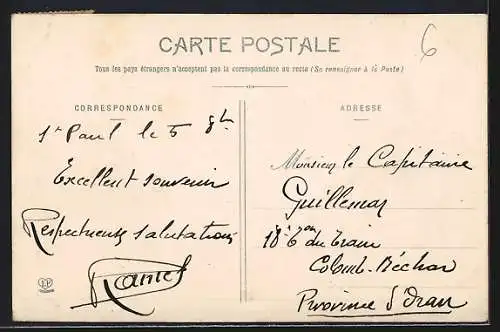 CARTE POSTALE
6
Tous les pays étrangers n'acceptent pas la correspondance au recto (Se renseigner à la Poste)
CORRESPONDANCE
St Paul le 5 8bre
Excellent souvenir
Respectueuses salutations
ADRESSE
Monsieur le Capitaine
Guillemar
18e Eon du Train
Colomb-Béchar
Province d'Oran